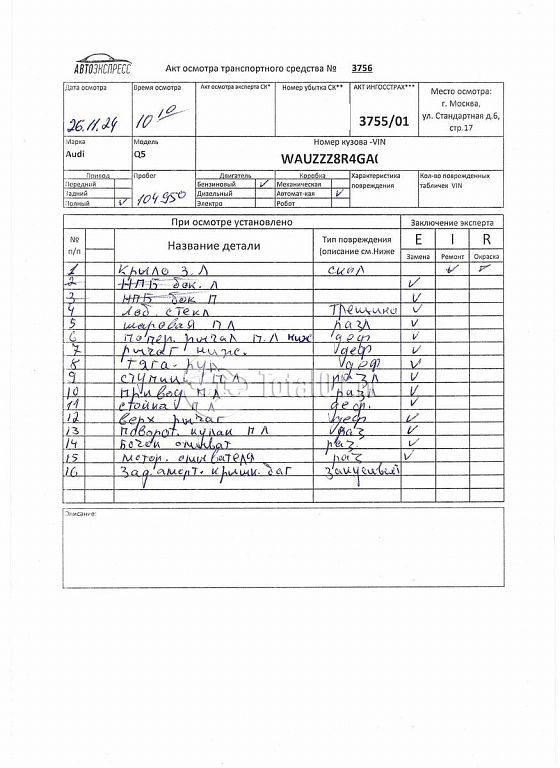 АВТОЭКСПРЕСС
Акт осмотра транспортного средства № 3756
Дата осмотра Время осмотра Акт осмотра эксперта СК* Номер убытка СК** АКТ ИНГОССТРАХ*** Место осмотра:
г. Москва,
ул. Стандартная д.6,
стр.17
26.11.24 10 10 3755/01
Марка Модель Номер кузова -VIN
Audi Q5 WAUZZZ8R4GA
Привод Пробег Двигатель Коробка Характеристика повреждения Кол-во поврежденных табличек VIN
Передний Бензиновый ✓ Механическая
Задний 104950 Дизельный Автомат-кая ✓
Полный ✓ Электро Робот
При осмотре установлено Заключение эксперта
№ п/п Название детали Тип повреждения (описание см.Ниже E I R
Замена Ремонт Окраска
1 Крыло З.Л скол ✓ ✓
2 НПБ бок. Л ✓
3 НПБ бок П ✓
4 Лоб. стекл трещина ✓
5 шаровая ПЛ разл ✓
6 попер. рычаг П.Л ниж деф ✓
7 рычаг ниж. деф ✓
8 тяга рул деф ✓
9 ступица ПЛ разл ✓
10 привод ПЛ разл ✓
11 стойка ПЛ деф. ✓
12 верх рычаг деф ✓
13 поворот. кулак ПЛ раз ✓
14 Бочок омыват раз. ✓
15 мотор. омывателя раз ✓
16 Зад. аморт. крышк. баг
Описание:
TotalO